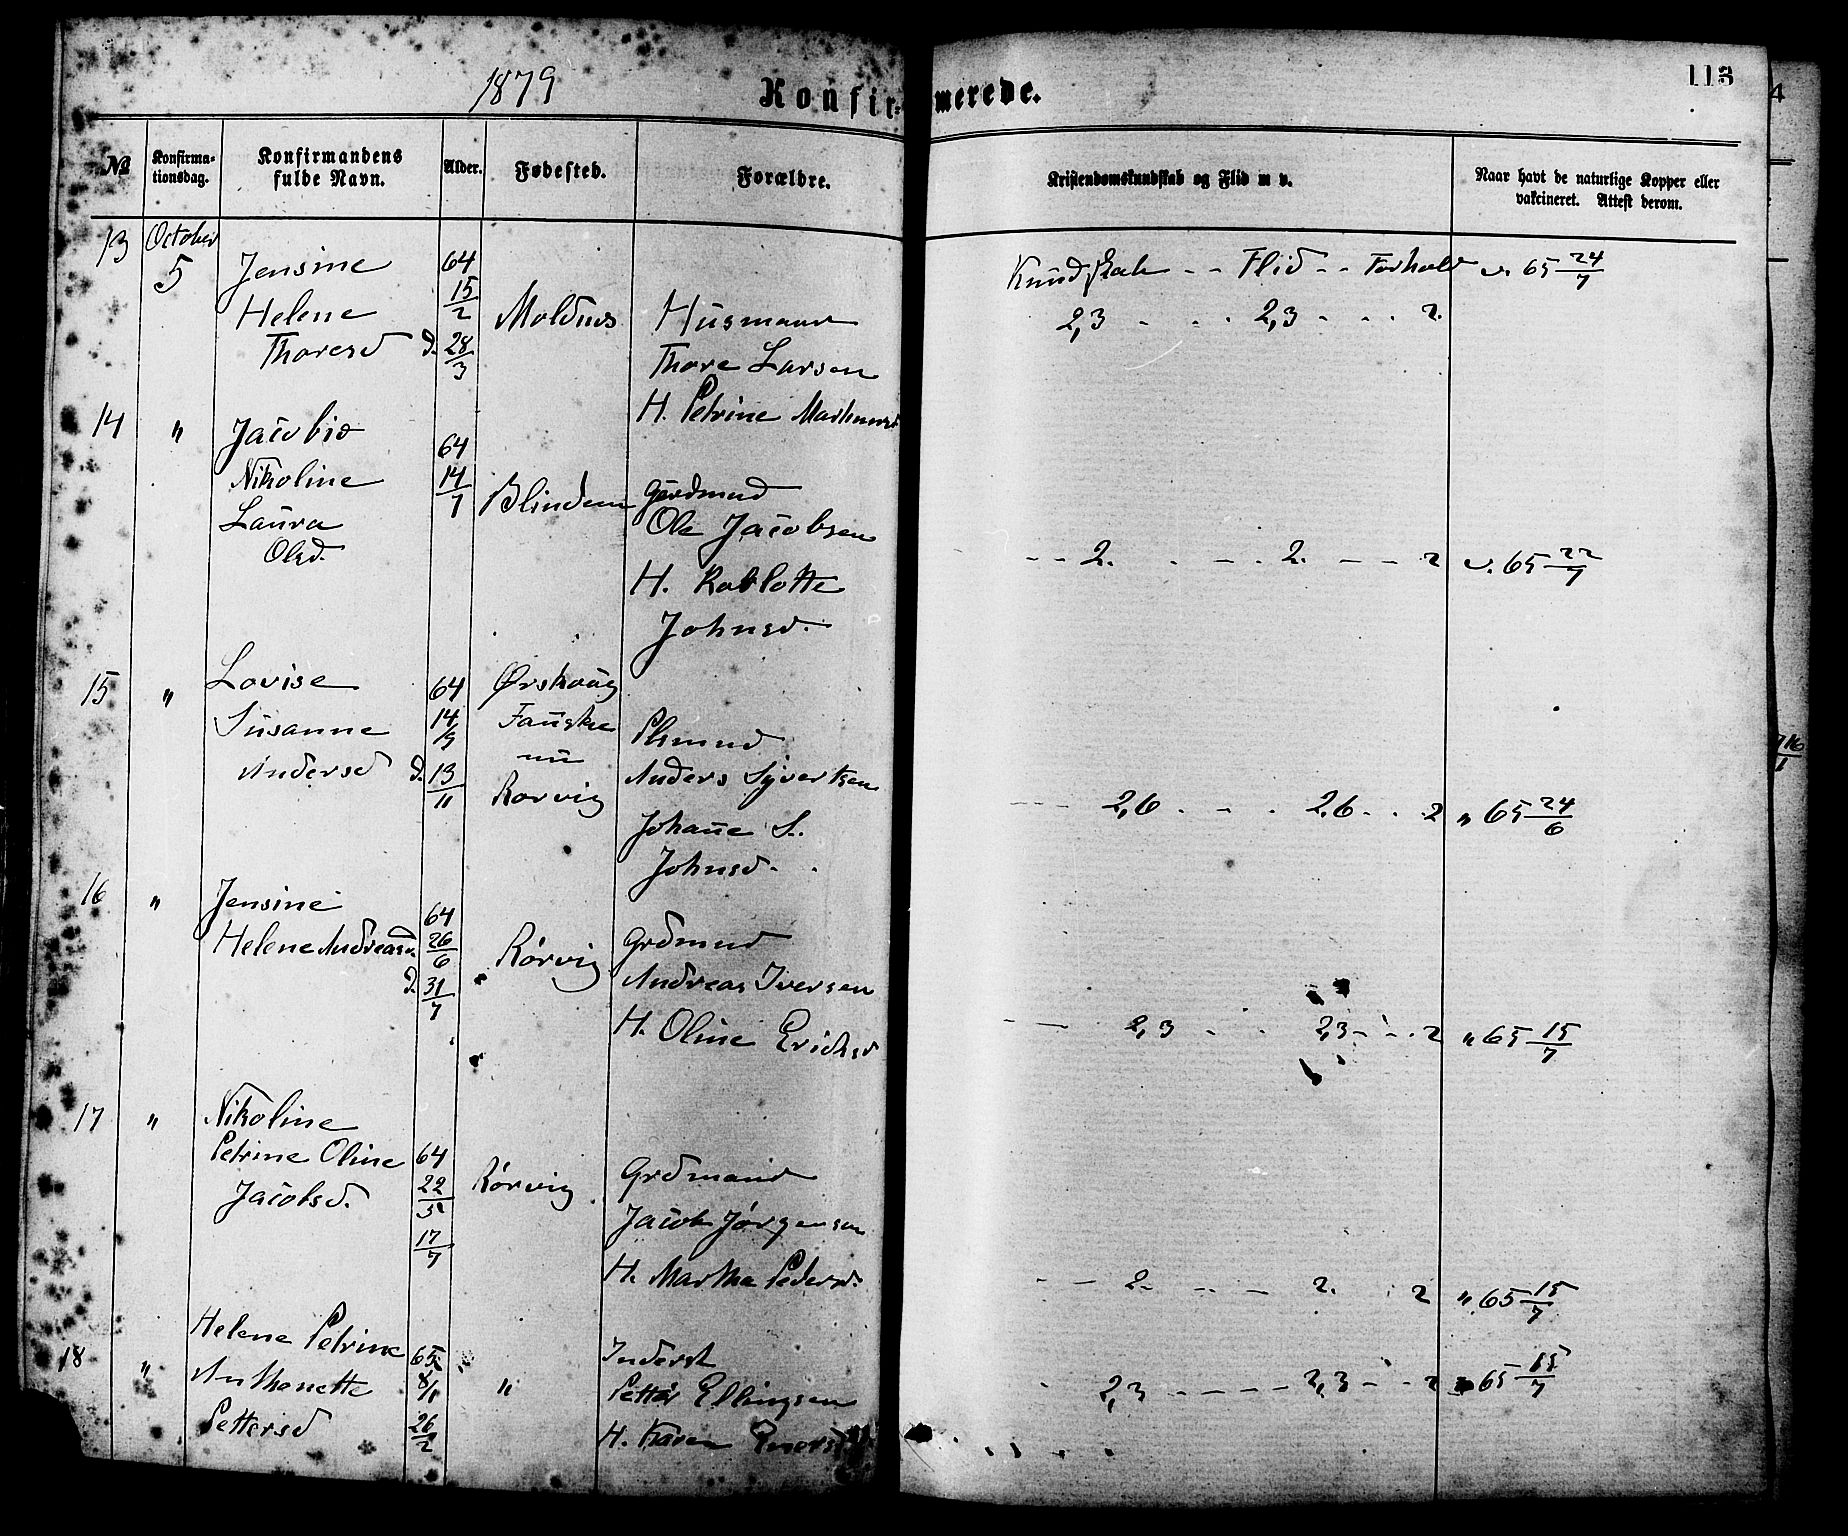 1879
Konfirmerede.
113
№
Konfirma-
tionsdag.
Konfirmandens
fulde Navn.
Alder.
Fødested.
Forældre.
Kristendomskundskab og Flid m v.
Naar havt de naturlige Kopper eller
vakcineret. Attest derom.
13 October
5
Jensine
Helene
Thoresd
64
15/2
d. 28/3
Moldnes
Husmand
Thore Larsen
H. Petrine
Kundskab - - Flid - - Forhold v. 65 24/7
2,3 - - - 2,3 - - - 2.
14 "
Jacobie
Nikoline
Laura
Olsd.
64
14/7
Blindem
Ole Jacobsen
H.
Johnsd.
-- 2. - - - 2. - - - 2 v. 65 22/7
15 "
Lovise
Susanne
Andersd
64
14/9
d. 13/11
Ørskoug
Fauske
nu
Rørvig
Plsmnd
Anders Syvertsen
Johanne S.
Johnsd.
--- 2,6 - - - 2,6 - - 2 " 65 24/6
16 "
Jensine
Helene Andreasd.
64
26/6
d. 31/7
Rørvig
Grdmnd
Andreas Iversen
H. Oline Ericksd
-- 2,3 - - 2,3 - - - 2 " 65 15/7
17 "
Nikoline
Petrine Oline
Jacobsd.
64
22/5
17/7
Rørvig.
Grdmand
Jacob Jørgensen
H. Marthe Pedersd.
-- 2. - - - 2. - 2 " 65 15/7
18 "
Helene Petrine
Anthonette
Pettersd
65
8/1
26/2
"
Inderst
Petter Ellingsen
H. Karen
- 2,3 - - - - 2,3 - - 2 65 15/7